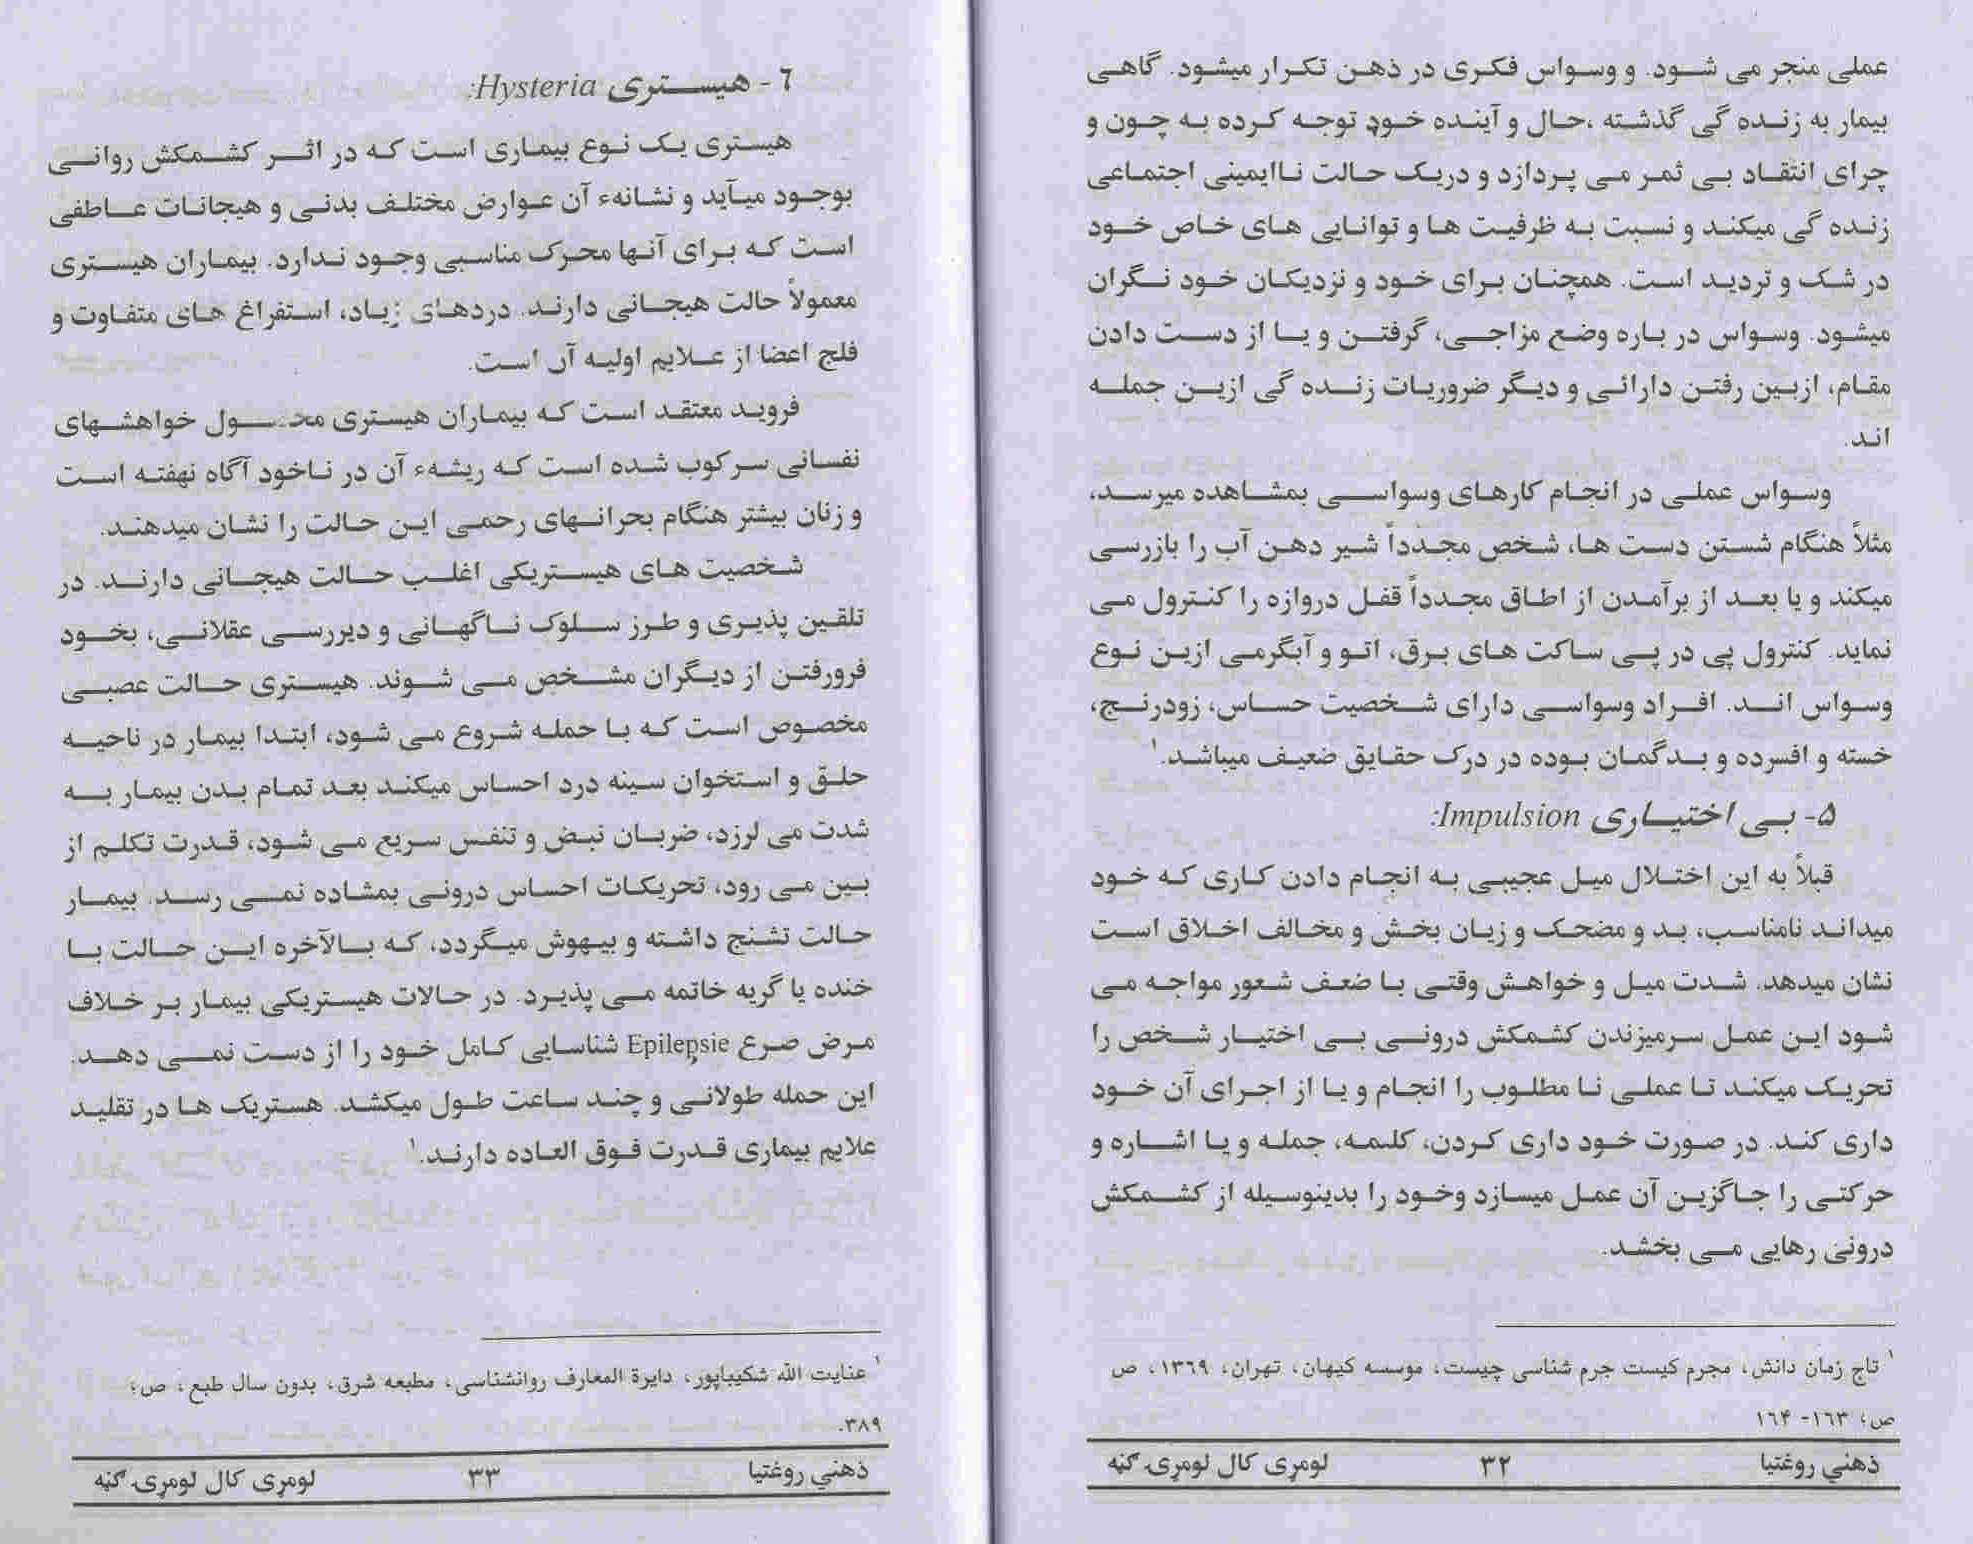 عملی منجر می شود. و وسواس فکری در ذهن تکرار میشود. گاهی
بیمار به زنده گی گذشته ،حال و آینده خود توجه کرده به چون و
چرای انتقاد بی ثمر می پردازد و دریک حالت ناایمینی اجتماعی
زنده گی میکند و نسبت به ظرفیت ها و توانایی های خاص خود
در شک و تردید است. همچنان برای خود و نزدیکان خود نگران
میشود. وسواس در باره وضع مزاجی، گرفتن و یا از دست دادن
مقام، ازبین رفتن دارائی و دیگر ضروریات زنده گی ازین جمله
اند.
وسواس عملی در انجام کارهای وسواسی بمشاهده میرسد،
مثلاً هنگام شستن دست ها، شخص مجدداً شیر دهن آب را بازرسی
میکند و یا بعد از برآمدن از اطاق مجدداً قفل دروازه را کنترول می
نماید. کنترول پی در پی ساکت های برق، اتو و آبگرمی ازین نوع
وسواس اند. افراد وسواسی دارای شخصیت حساس، زودرنج،
خسته و افسرده و بدگمان بوده در درک حقایق ضعیف میباشد.۱
۵- بی اختیاری Impulsion:
قبلاً به این اختلال میل عجیبی به انجام دادن کاری که خود
میداند نامناسب، بد و مضحک و زیان بخش و مخالف اخلاق است
نشان میدهد. شدت میل و خواهش وقتی با ضعف شعور مواجه می
شود این عمل سرمیزندن کشمکش درونی بی اختیار شخص را
تحریک میکند تا عملی نا مطلوب را انجام و یا از اجرای آن خود
داری کند. در صورت خود داری کردن، کلمه، جمله و یا اشاره و
حرکتی را جاگزین آن عمل میسازد وخود را بدینوسیله از کشمکش
درونی رهایی می بخشد.
۱ تاج زمان دانش، مجرم کیست جرم شناسی چیست، موسسه کیهان، تهران، ۱۳٦۹، ص
ص؛ ۱٦۳- ۱٦۴
ذهني روغتیا ۳۲ لومړی کال لومړۍ ګڼه
٦ - هیستری Hysteria:
هیستری یک نوع بیماری است که در اثر کشمکش روانی
بوجود میآید و نشانهء آن عوارض مختلف بدنی و هیجانات عاطفی
است که برای آنها محرک مناسبی وجود ندارد. بیماران هیستری
معمولاً حالت هیجانی دارند. دردهای زیاد، استفراغ های متفاوت و
فلج اعضا از علایم اولیه آن است.
فروید معتقد است که بیماران هیستری محصول خواهشهای
نفسانی سرکوب شده است که ریشهء آن در ناخود آگاه نهفته است
و زنان بیشتر هنگام بحرانهای رحمی این حالت را نشان میدهند.
شخصیت های هیستریکی اغلب حالت هیجانی دارند. در
تلقین پذیری و طرز سلوک ناگهانی و دیررسی عقلانی، بخود
فرورفتن از دیگران مشخص می شوند. هیستری حالت عصبی
مخصوص است که با حمله شروع می شود، ابتدا بیمار در ناحیه
حلق و استخوان سینه درد احساس میکند بعد تمام بدن بیمار به
شدت می لرزد، ضربان نبض و تنفس سریع می شود، قدرت تکلم از
بین می رود، تحریکات احساس درونی بمشاده نمی رسد. بیمار
حالت تشنج داشته و بیهوش میگردد، که بالآخره این حالت با
خنده یا گریه خاتمه می پذیرد. در حالات هیستریکی بیمار بر خلاف
مرض صرع Epilepsie شناسایی کامل خود را از دست نمی دهد.
این حمله طولانی و چند ساعت طول میکشد. هستریک ها در تقلید
علایم بیماری قدرت فوق العاده دارند.۱
۱ عنایت الله شکیباپور، دایرة المعارف روانشناسی، مطبعه شرق، بدون سال طبع، ص؛
۳۸۹.
ذهني روغتیا ۳۳ لومړی کال لومړۍ ګڼه